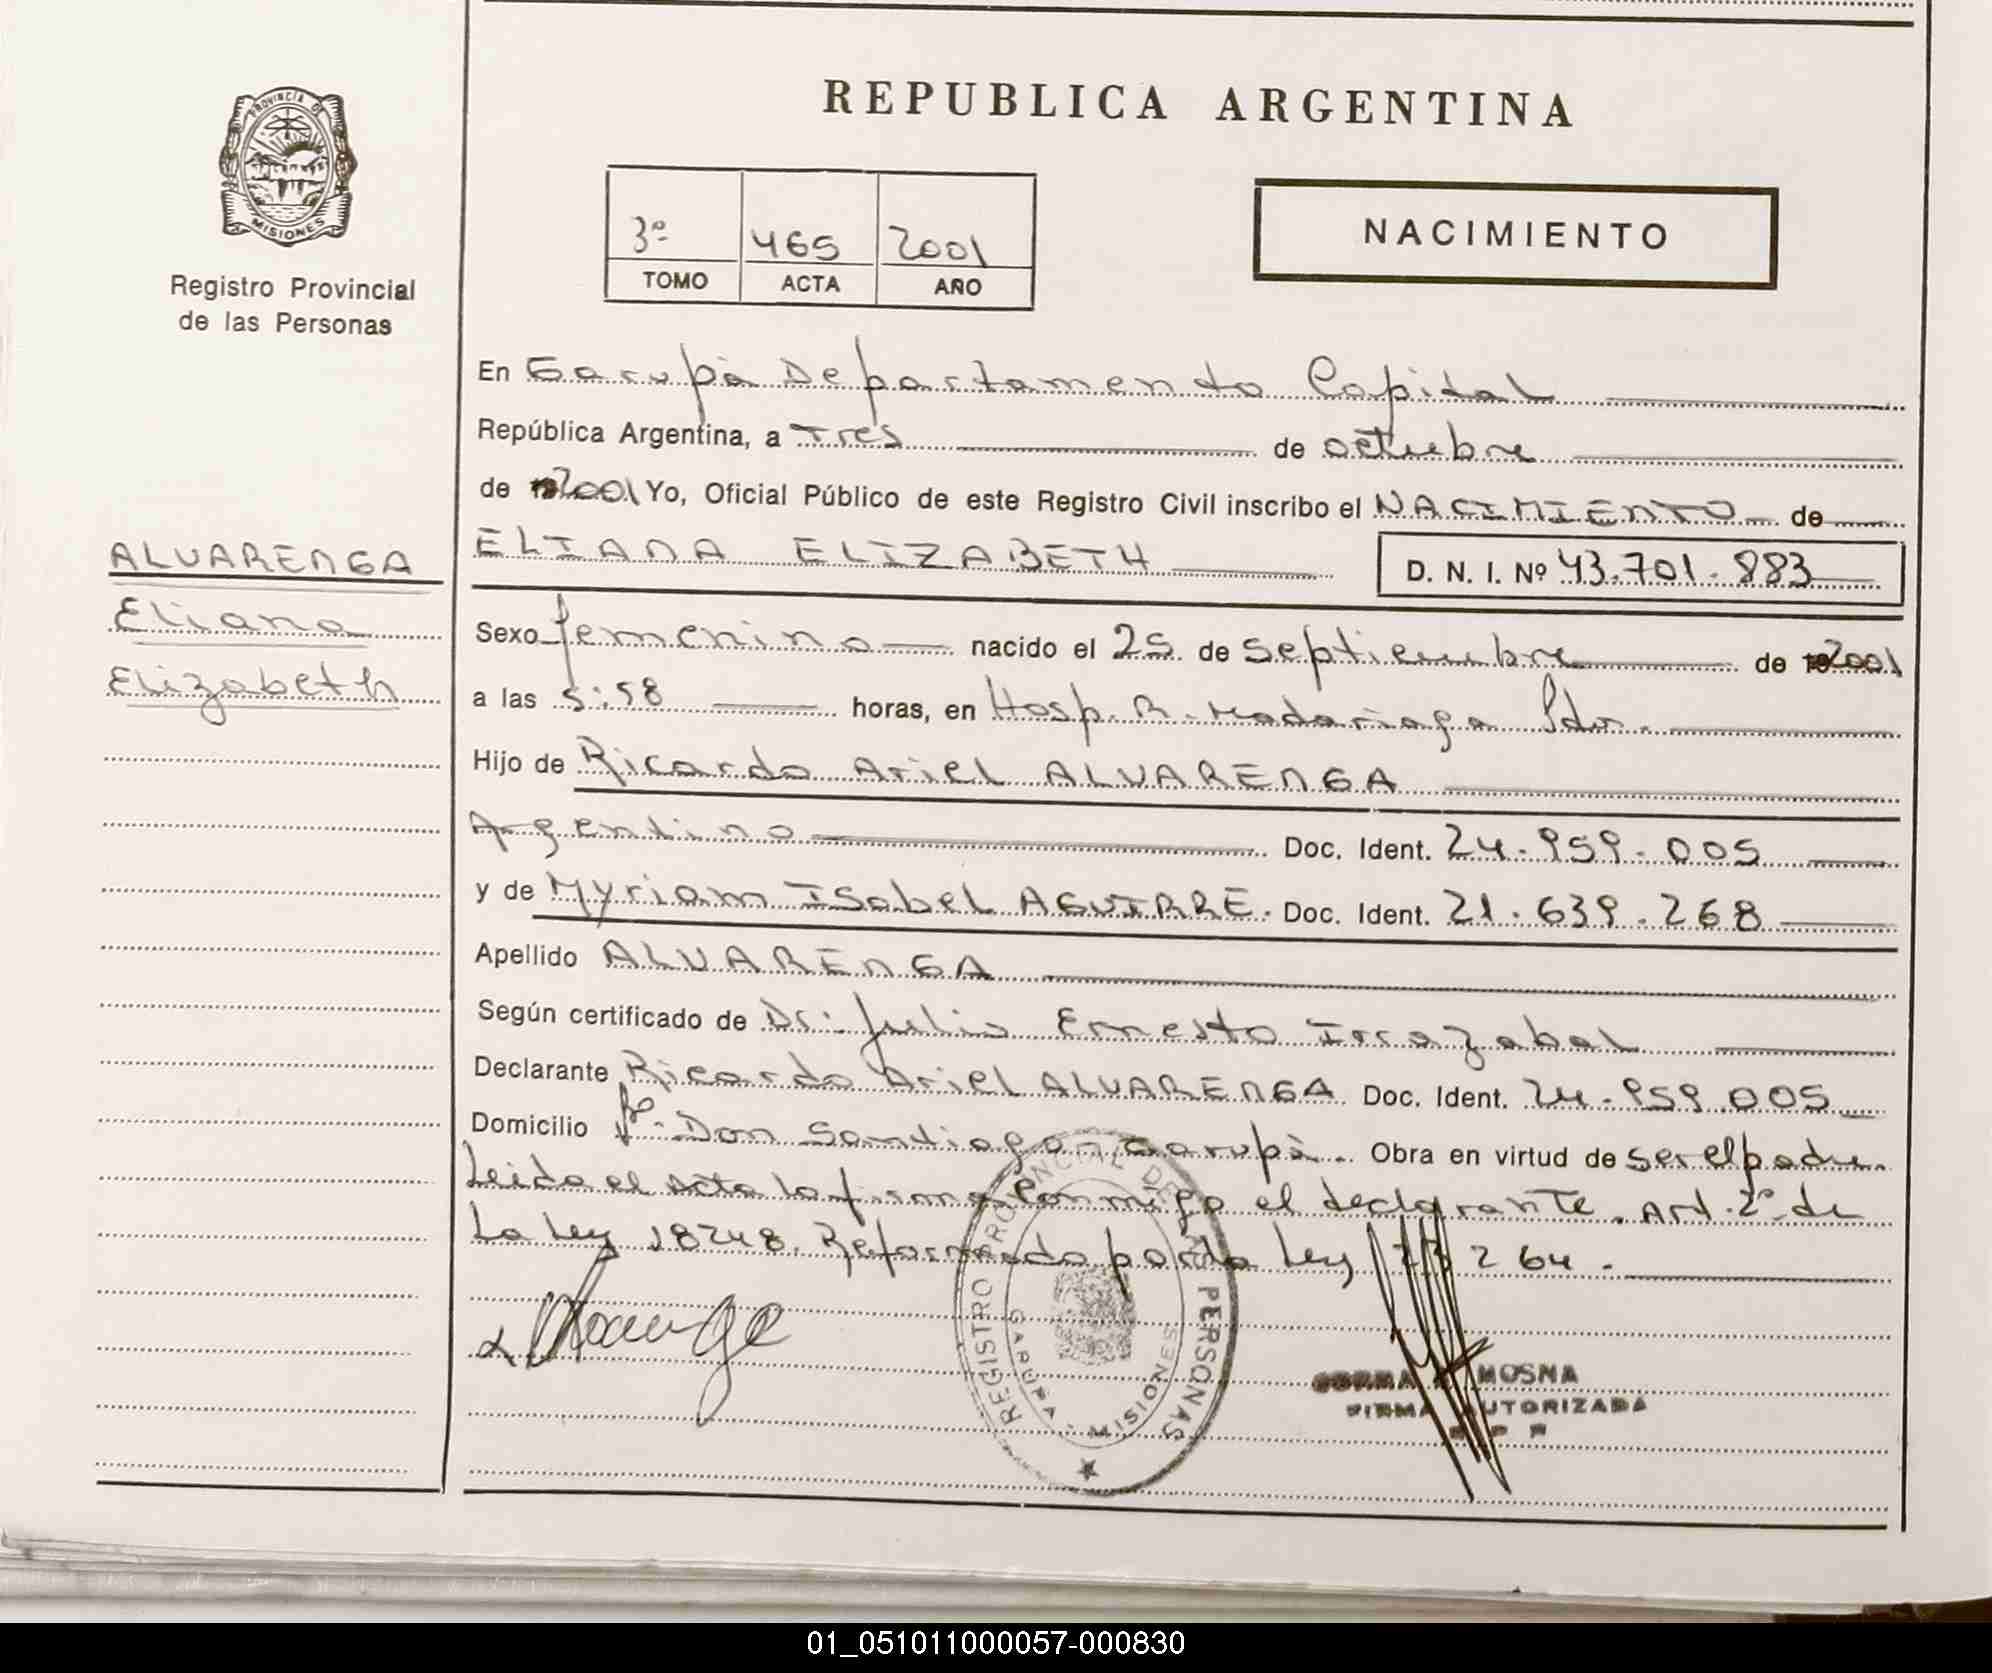 REPUBLICA ARGENTINA
PROVINCIA DE MISIONES
Registro Provincial
de las Personas
3º 465 2001
TOMO ACTA AÑO
NACIMIENTO
En Garupá Departamento Capital
República Argentina, a Tres de octubre
de 2001 Yo, Oficial Público de este Registro Civil inscribo el NACIMIENTO de
ELIANA ELIZABETH D. N. I. Nº 43.701.883
ALVARENGA
Eliana
Elizabeth
Sexo femenino nacido el 25 de septiembre de 2001
a las 5:58 horas, en Hosp. R. Madariaga Pdas.
Hijo de Ricardo Ariel ALVARENGA
Argentino Doc. Ident. 24.959.005
y de Myriam Isabel AGUIRRE. Doc. Ident. 21.639.268
Apellido ALVARENGA
Según certificado de Dr: Julio Ernesto Irrazabal
Declarante Ricardo Ariel ALVARENGA Doc. Ident. 24.959.005
Domicilio Bº. Don Santiago Garupá. Obra en virtud de ser el padre.
Leida el Acta la firma conmigo el declarante. Art. 2º de
La Ley 18248. Reformado por la Ley 23264.
REGISTRO PROVINCIAL DE LAS PERSONAS
GARUPA - MISIONES
MOSNA
FIRMA AUTORIZADA
01_051011000057-000830